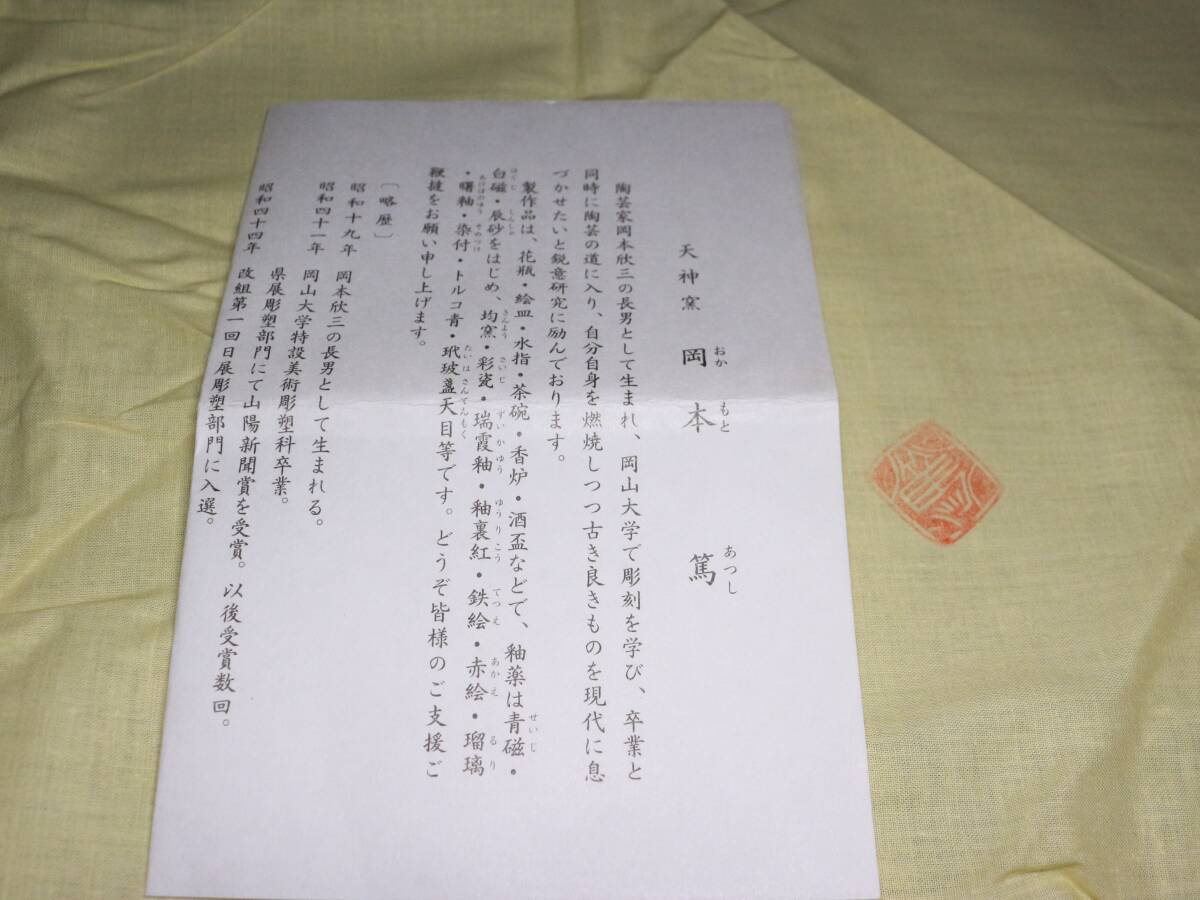 天神窯 岡本 篤
おか もと あつし
陶芸家岡本欣三の長男として生まれ、岡山大学で彫刻を学び、卒業と
同時に陶芸の道に入り、自分自身を燃焼しつつ古き良きものを現代に息
づかせたいと鋭意研究に励んでおります。
製作品は、花瓶・絵皿・水指・茶碗・香炉・酒盃などで、釉薬は青磁・
せいじ
白磁・辰砂をはじめ、均窯・彩瓷・瑞霞釉・釉裏紅・鉄絵・赤絵・瑠璃
はくじ しんしゃ きんよう さいじ ずいかゆう ゆうりこう てつえ あかえ るり
・曙釉・染付・トルコ青・玳玻盞天目等です。どうぞ皆様のご支援ご
あけぼのゆう そめつけ たいはさんてんもく
鞭撻をお願い申し上げます。
〔略歴〕
昭和十九年 岡本欣三の長男として生まれる。
昭和四十一年 岡山大学特設美術彫塑科卒業。
県展彫塑部門にて山陽新聞賞を受賞。以後受賞数回。
昭和四十四年 改組第一回日展彫塑部門に入選。